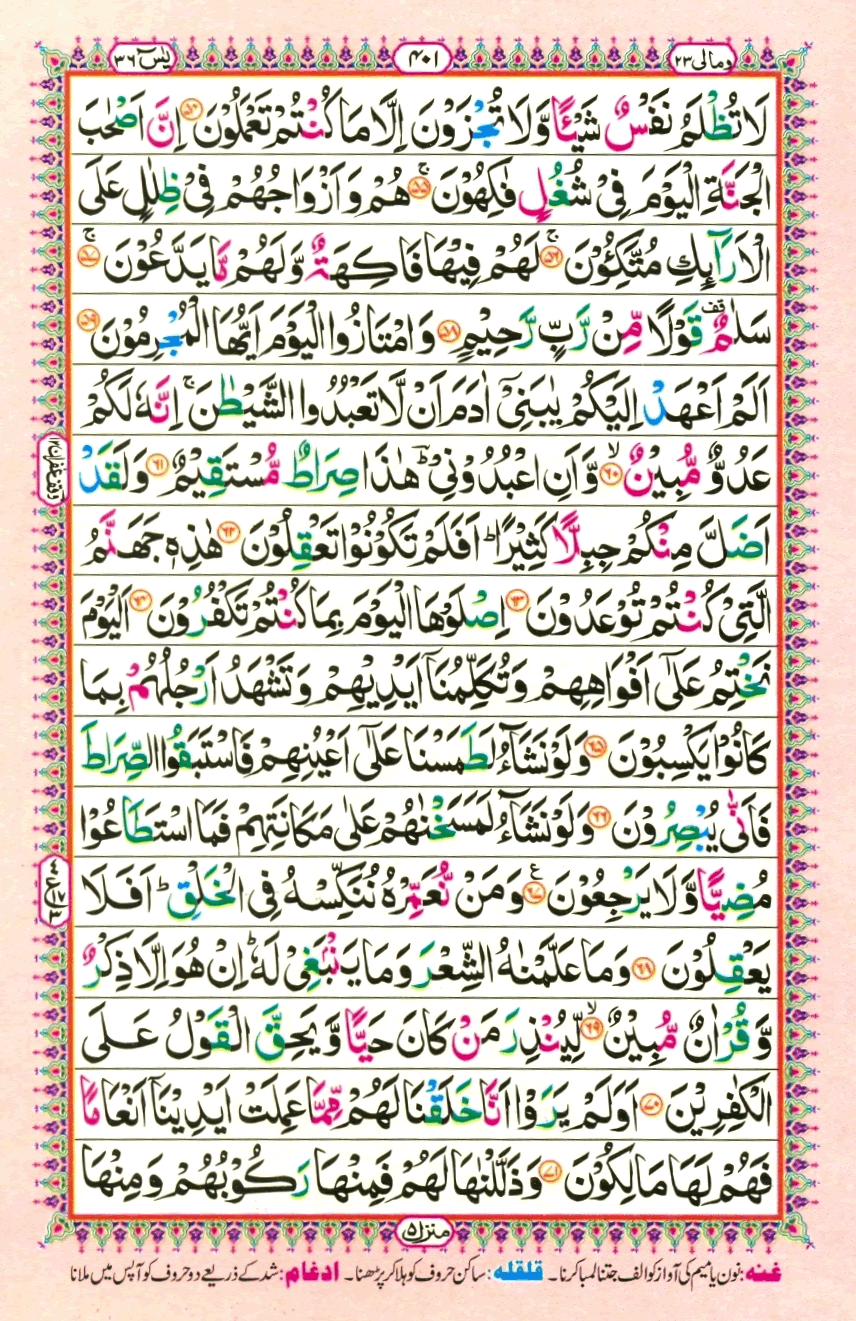 ومالی ۲۳ ۴۰۱ یٰسٓ ۳۶
لَا تُظْلَمُ نَفْسٌ شَیْـًٔا وَّلَا تُجْزَوْنَ اِلَّا مَا كُنْتُمْ تَعْمَلُوْنَ ۝۵۴ اِنَّ اَصْحٰبَ
الْجَنَّةِ الْیَوْمَ فِیْ شُغُلٍ فٰكِهُوْنَ ۝۵۵ۚ هُمْ وَ اَزْوَاجُهُمْ فِیْ ظِلٰلٍ عَلَی
الْاَرَآىِٕكِ مُتَّكِـُٔوْنَ ۝۵۶ۚ لَهُمْ فِیْهَا فَاكِهَةٌ وَّ لَهُمْ مَّا یَدَّعُوْنَ ۝۵۷ۚ
سَلٰمٌ قف قَوْلًا مِّنْ رَّبٍّ رَّحِیْمٍ ۝۵۸ وَ امْتَازُوا الْیَوْمَ اَیُّهَا الْمُجْرِمُوْنَ ۝۵۹
اَلَمْ اَعْهَدْ اِلَیْكُمْ یٰبَنِیْۤ اٰدَمَ اَنْ لَّا تَعْبُدُوا الشَّیْطٰنَ ۚ اِنَّهٗ لَكُمْ
عَدُوٌّ مُّبِیْنٌ ۝۶۰ۙ وَّ اَنِ اعْبُدُوْنِیْ ؕ هٰذَا صِرَاطٌ مُّسْتَقِیْمٌ ۝۶۱ وَ لَقَدْ
اَضَلَّ مِنْكُمْ جِبِلًّا كَثِیْرًا ؕ اَفَلَمْ تَكُوْنُوْا تَعْقِلُوْنَ ۝۶۲ هٰذِهٖ جَهَنَّمُ
الَّتِیْ كُنْتُمْ تُوْعَدُوْنَ ۝۶۳ اِصْلَوْهَا الْیَوْمَ بِمَا كُنْتُمْ تَكْفُرُوْنَ ۝۶۴ اَلْیَوْمَ
نَخْتِمُ عَلٰۤی اَفْوَاهِهِمْ وَ تُكَلِّمُنَاۤ اَیْدِیْهِمْ وَ تَشْهَدُ اَرْجُلُهُمْ بِمَا
كَانُوْا یَكْسِبُوْنَ ۝۶۵ وَ لَوْ نَشَآءُ لَطَمَسْنَا عَلٰۤی اَعْیُنِهِمْ فَاسْتَبَقُوا الصِّرَاطَ
فَاَنّٰی یُبْصِرُوْنَ ۝۶۶ وَ لَوْ نَشَآءُ لَمَسَخْنٰهُمْ عَلٰی مَكَانَتِهِمْ فَمَا اسْتَطَاعُوْا
مُضِیًّا وَّ لَا یَرْجِعُوْنَ ۝۶۷ع وَ مَنْ نُّعَمِّرْهُ نُنَكِّسْهُ فِی الْخَلْقِ ؕ اَفَلَا
یَعْقِلُوْنَ ۝۶۸ وَ مَا عَلَّمْنٰهُ الشِّعْرَ وَ مَا یَنْۢبَغِیْ لَهٗ ؕ اِنْ هُوَ اِلَّا ذِكْرٌ
وَّ قُرْاٰنٌ مُّبِیْنٌ ۝۶۹ۙ لِّیُنْذِرَ مَنْ كَانَ حَیًّا وَّ یَحِقَّ الْقَوْلُ عَلَی
الْكٰفِرِیْنَ ۝۷۰ اَوَلَمْ یَرَوْا اَنَّا خَلَقْنَا لَهُمْ مِّمَّا عَمِلَتْ اَیْدِیْنَاۤ اَنْعَامًا
فَهُمْ لَهَا مٰلِكُوْنَ ۝۷۱ وَ ذَلَّلْنٰهَا لَهُمْ فَمِنْهَا رَكُوْبُهُمْ وَ مِنْهَا
منزل ۵
غنہ: نون یا میم کی آواز کو الف جتنا لمبا کرنا۔ قلقلہ: ساکن حروف کو ہلا کر پڑھنا۔ ادغام: شد کے ذریعے دو حروف کو آپس میں ملانا